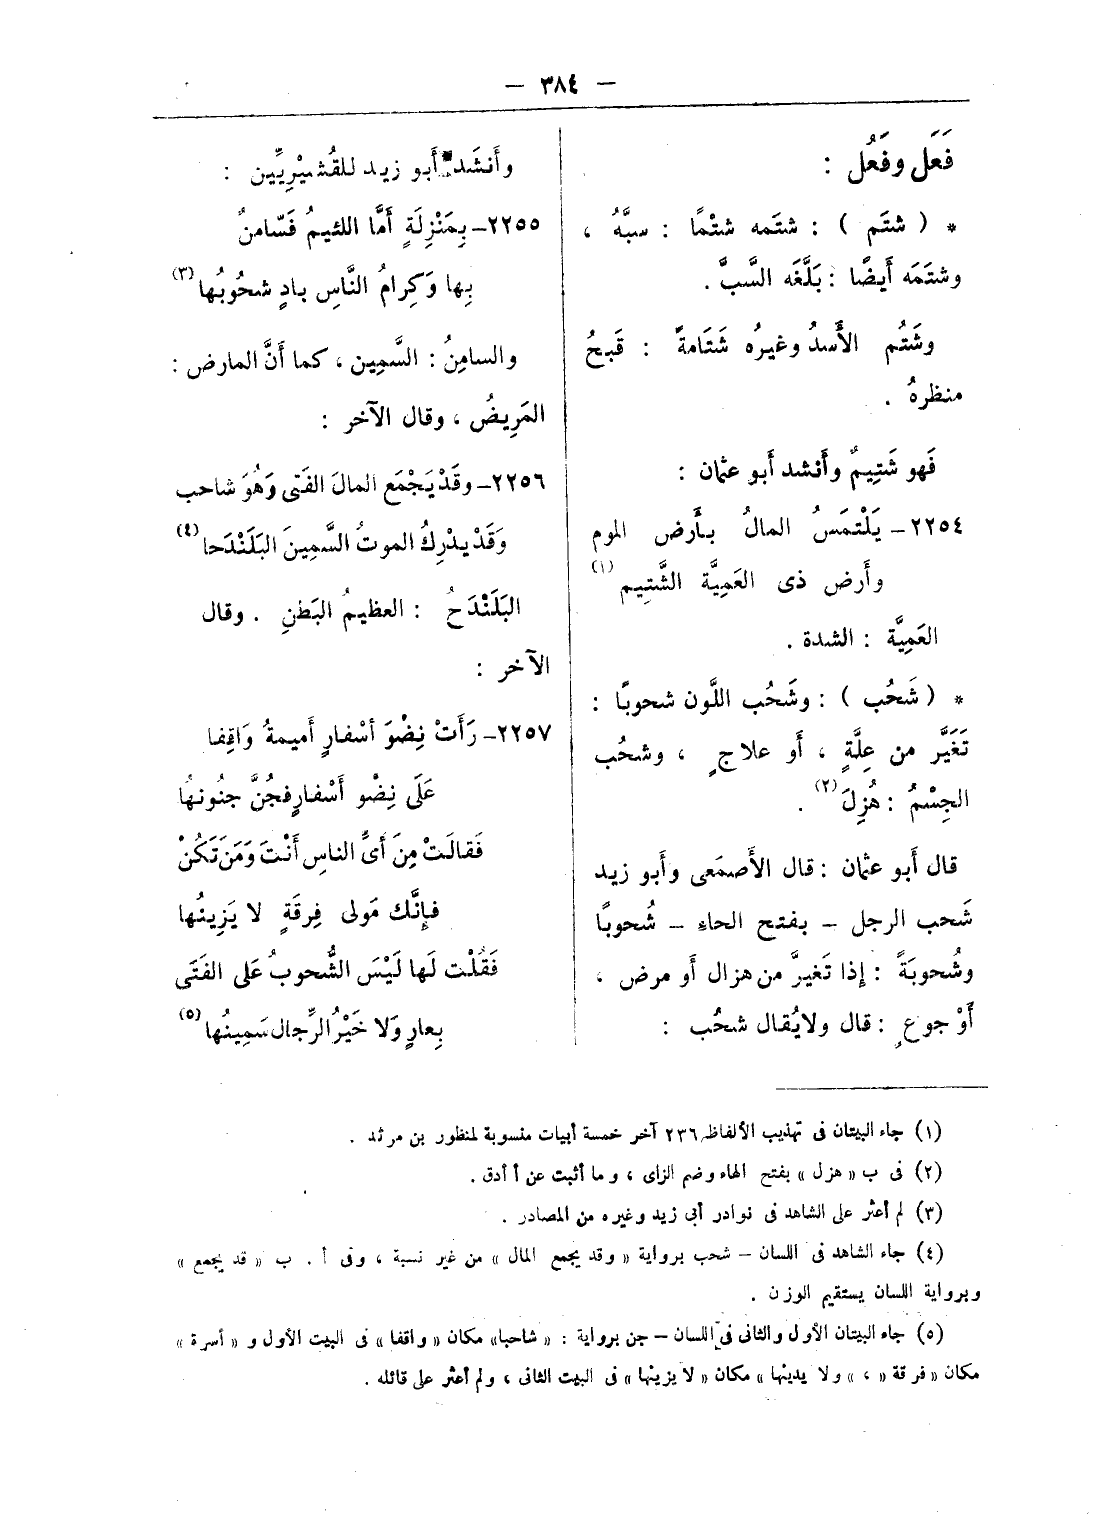 — ٣٨٤ —
فَعَل وفَعُل :
* ( شتَم ) : شتَمه شتْمًا : سبَّهُ ،
وشتَمَه أَيضًا : بَلَّغَه السَّبَّ .
وشَتُم الأَسدُ وغيرُه شَتَامةً : قَبحُ
منظرهُ .
فَهو شَتِيمٌ وأَنشد أَبو عثمان :
٢٢٥٤ – يَلْتمَسُ المالُ بأَرض الموم
وأَرض ذى العَمِيَّة الشَّتِيم (١)
العَمِيَّة : الشدة .
* ( شَحُب ) : وشَحُب اللَّون شحوبًا :
تَغَيَّر من عِلَّةٍ ، أَو علاجٍ ، وشحُب
الجِسْمُ : هُزِلَ (٢) .
قال أَبو عثمان : قال الأَصمَعى وأَبو زيد
شَحب الرجل – بفتح الحاءِ – شُحوبًا
وشُحوبَةً : إذا تَغيرَّ من هزال أَو مرض ،
أَوْ جوعٍ : قال ولايُقال شحُب :
وأَنشَد أَبو زيد للقُشيْرِيِّين :
٢٢٥٥ – بِمَنْزِلَةٍ أَمَّا اللئيمُ فَسّامنٌ
بِها وَكِرامُ النَّاسِ بادٍ شحُوبُها (٣)
والسامِنُ : السَّمِين ، كما أَنَّ المارض :
المَرِيضُ ، وقال الآخر :
٢٢٥٦ – وقَدْ يَجْمَع المالَ الفَتى وَهُوَ شاحب
وَقَدْ يدْرِكُ الموتُ السَّمِينَ البَلَنْدَحا (٤)
البَلَنْدَحُ : العظيمُ البَطنِ . وقال
الآخر :
٢٢٥٧ – رَأَتْ نِضْوَ أسْفارٍ أَميمةُ وَاقِفا
عَلَى نِضْو أَسْفارٍ فجُنَّ جنُونهُا
فَقالَتْ مِنَ أىِّ الناسِ أَنْتَ وَمَن تَكُنْ
فإِنَّك مَولى فِرقَةٍ لا يَزِينُها
فَقُلْت لَها لَيْسَ الشُّحوبُ عَلى الفَتَى
بِعارٍ وَلا خَيْرُ الرِّجالِ سَمِينُها (٥)
(١) جاء البيتان فى تهذيب الألفاظ ٢٣٦ آخر خمسة أبيات منسوبة لمنظور بن مرثد .
(٢) فى ب « هزل » بفتح الهاء وضم الزاى ، وما أثبت عن أ أدق .
(٣) لم أعثر على الشاهد فى نوادر أبى زيد وغيره من المصادر .
(٤) جاء الشاهد فى اللسان – شحب برواية « وقد يجمع المال » من غير نسبة ، وفى أ . ب « قد يجمع »
وبرواية اللسان يستقيم الوزن .
(٥) جاء البيتان الأول والثانى فى اللسان – جن برواية : « شاحبا » مكان « واقفا » فى البيت الأول و « أسرة »
مكان « فرقة « ، » ولا يدينها » مكان « لا يزينها » فى البيت الثانى ، ولم أعثر على قائله .